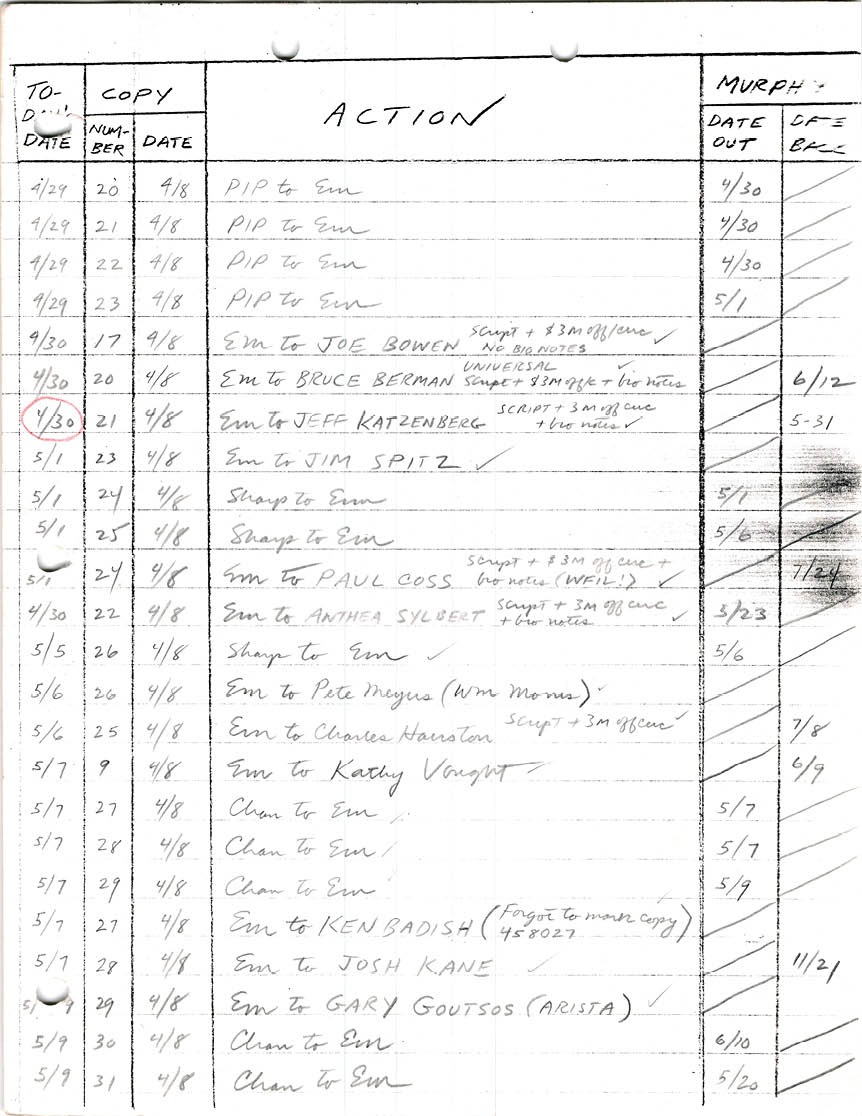 TO-
DAY'S
DATE
COPY
NUM-
BER
DATE
ACTION
MURPHY
DATE
OUT
DATE
BACK
4/29 20 4/8 PIP to Em 4/30
4/29 21 4/8 PIP to Em 4/30
4/29 22 4/8 PIP to Em 4/30
4/29 23 4/8 PIP to Em 5/1
4/30 17 4/8 Em to JOE BOWEN script + $3M off/circ ✓
NO BIO NOTES
UNIVERSAL ✓
4/30 20 4/8 Em to BRUCE BERMAN script + $3M off/c + bio notes 6/12
4/30 21 4/8 Em to JEFF KATZENBERG SCRIPT + 3M off circ 5-31
+ bio notes ✓
5/1 23 4/8 Em to JIM SPITZ ✓
5/1 24 4/8 Sharp to Em 5/1
5/1 25 4/8 Sharp to Em 5/6
script + $3M off circ +
5/1 24 4/8 Em to PAUL COSS bio notes (WEIL!) ✓ 7/24
4/30 22 4/8 Em to ANTHEA SYLBERT script + 3M off circ 5/23
+ bio notes ✓
5/5 26 4/8 Sharp to Em ✓ 5/6
5/6 26 4/8 Em to Pete Meyers (Wm Morris) ✓
5/6 25 4/8 Em to Charles Hairston script + 3M off circ ✓ 7/8
5/7 9 4/8 Em to Kathy Vought ✓ 6/9
5/7 27 4/8 Chan to Em 5/7
5/7 28 4/8 Chan to Em 5/7
5/7 29 4/8 Chan to Em 5/9
5/7 27 4/8 Em to KEN BADISH (Forgot to mark copy
458027)
5/7 28 4/8 Em to JOSH KANE ✓ 11/21
5/9 29 4/8 Em to GARY GOUTSOS (ARISTA) ✓
5/9 30 4/8 Chan to Em 6/10
5/9 31 4/8 Chan to Em 5/20